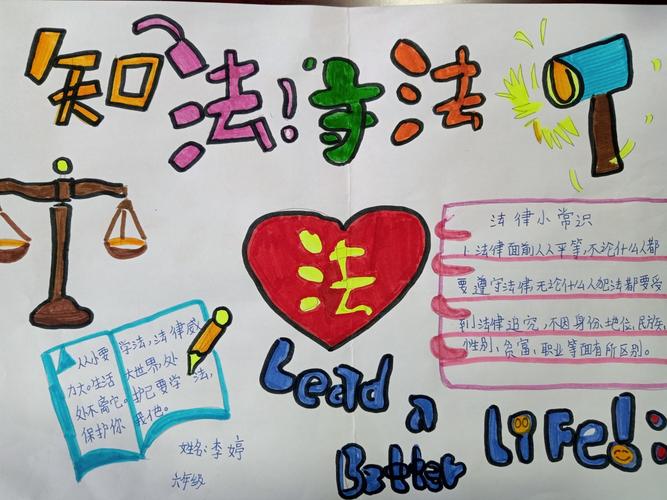 知法!守法
法
法律小常识
1、法律面前人人平等,不论什么人都
要遵守法律,无论什么人犯法都要受
到法律追究,不因身份、地位、民族、
性别、贫富、职业等面有所区别。
从小要学法,法律威
力大。生活大世界,处
处不离它。护己要学法,
保护你我他。
姓名:李婷
六年级
Lead a
Better
LiFe!